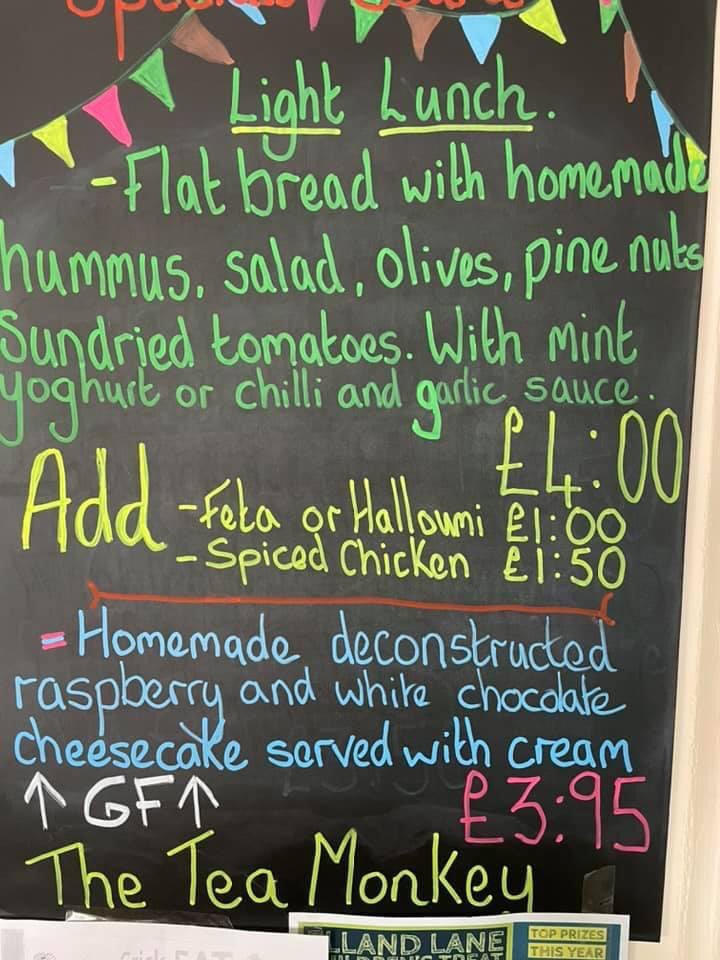 Specials Board
Light Lunch.
-Flat bread with homemade
hummus, salad, olives, pine nuts
Sundried tomatoes. With mint
yoghurt or chilli and garlic sauce.
£4:00
Add -feta or Halloumi £1:00
-Spiced Chicken £1:50
=Homemade deconstructed
raspberry and white chocolate
cheesecake served with cream
↑ GF ↑ £3:95
The Tea Monkey
LLAND LANE
TOP PRIZES
THIS YEAR